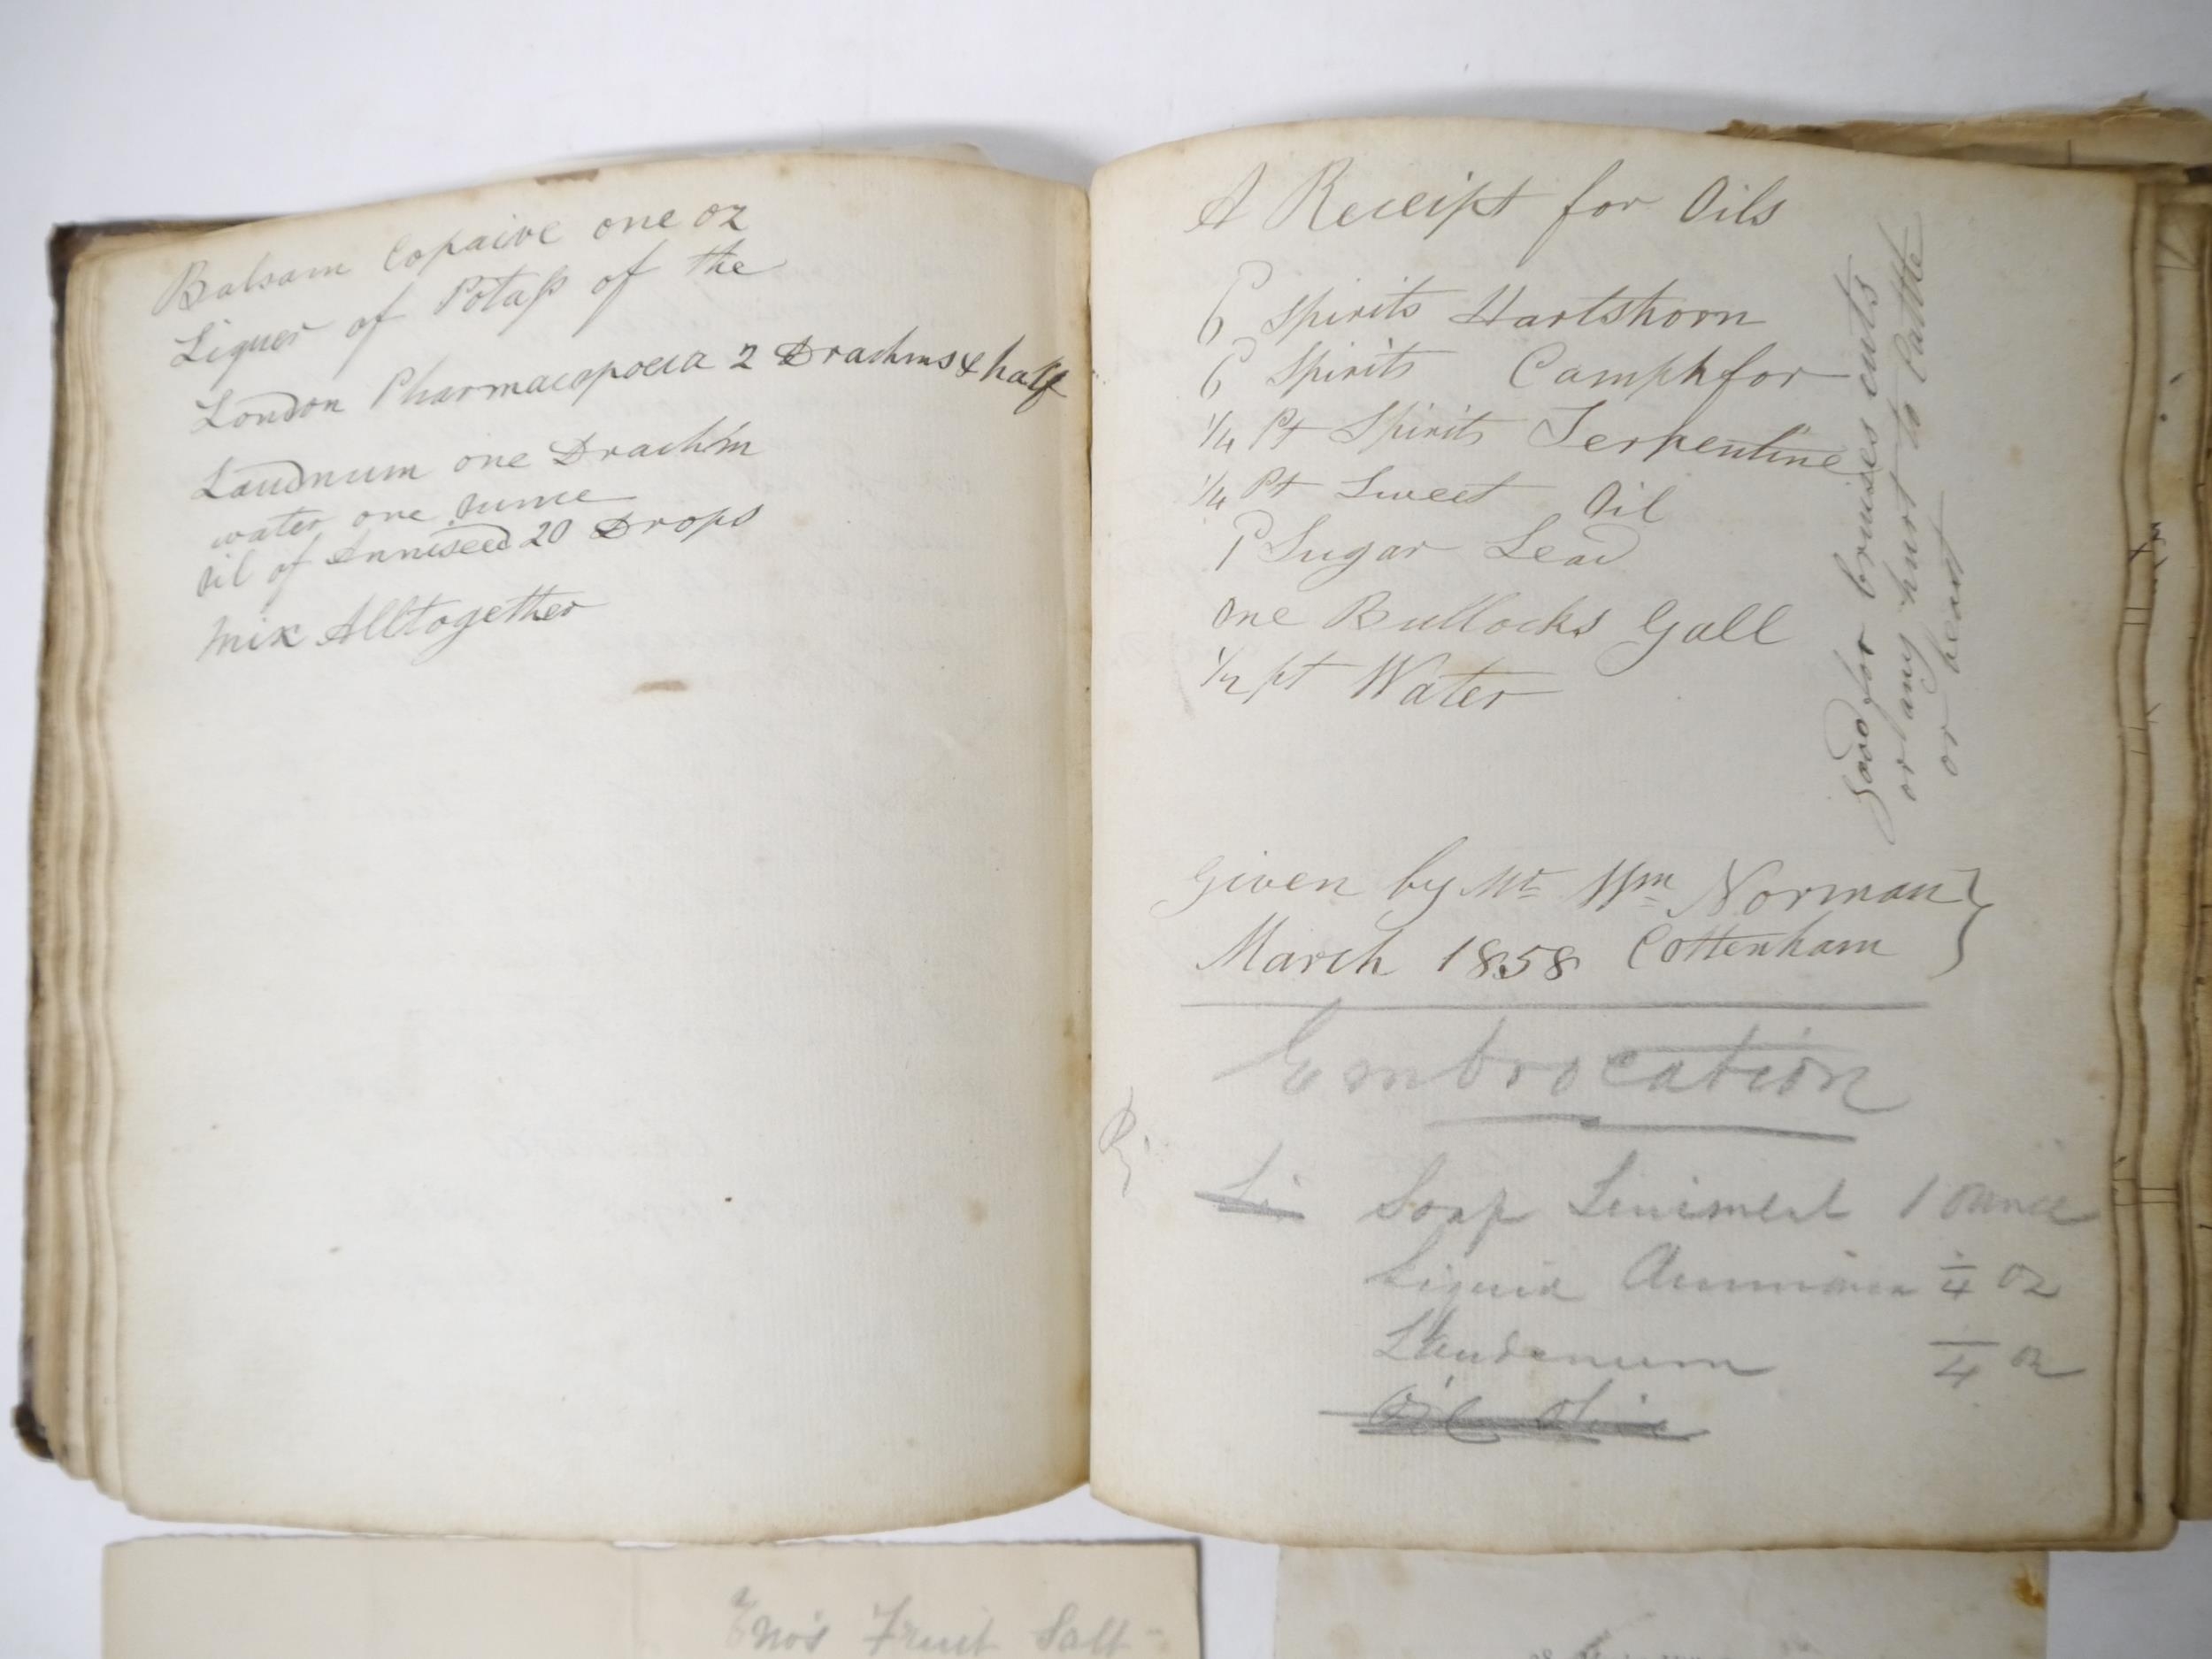 Balsam Copaive one oz
Liquer of Potaſs of the
London Pharmacopoeia 2 Drachms & half
Laudnum one Drachm
water one ounce
oil of Anniseed 20 Drops
Mix Alltogether
A Receipt for Oils
6 P Spirits Hartshorn
6 P Spirits Camphfor
1/4 Pt Spirits Terpentine
1/4 Pt Sweet Oil
1 P Sugar Lead
One Bullocks Gall
1/2 pt Water
Good for bruises cuts
or any hurt to Cattle
or beast
Given by Mr Wm Norman
March 1858 Cottenham
Embrocation
Li Soap Liniment 1 Ounce
Liquid Ammonia 1/4 oz
Laudenum 1/4 oz
Oil
Eno's Fruit Salt